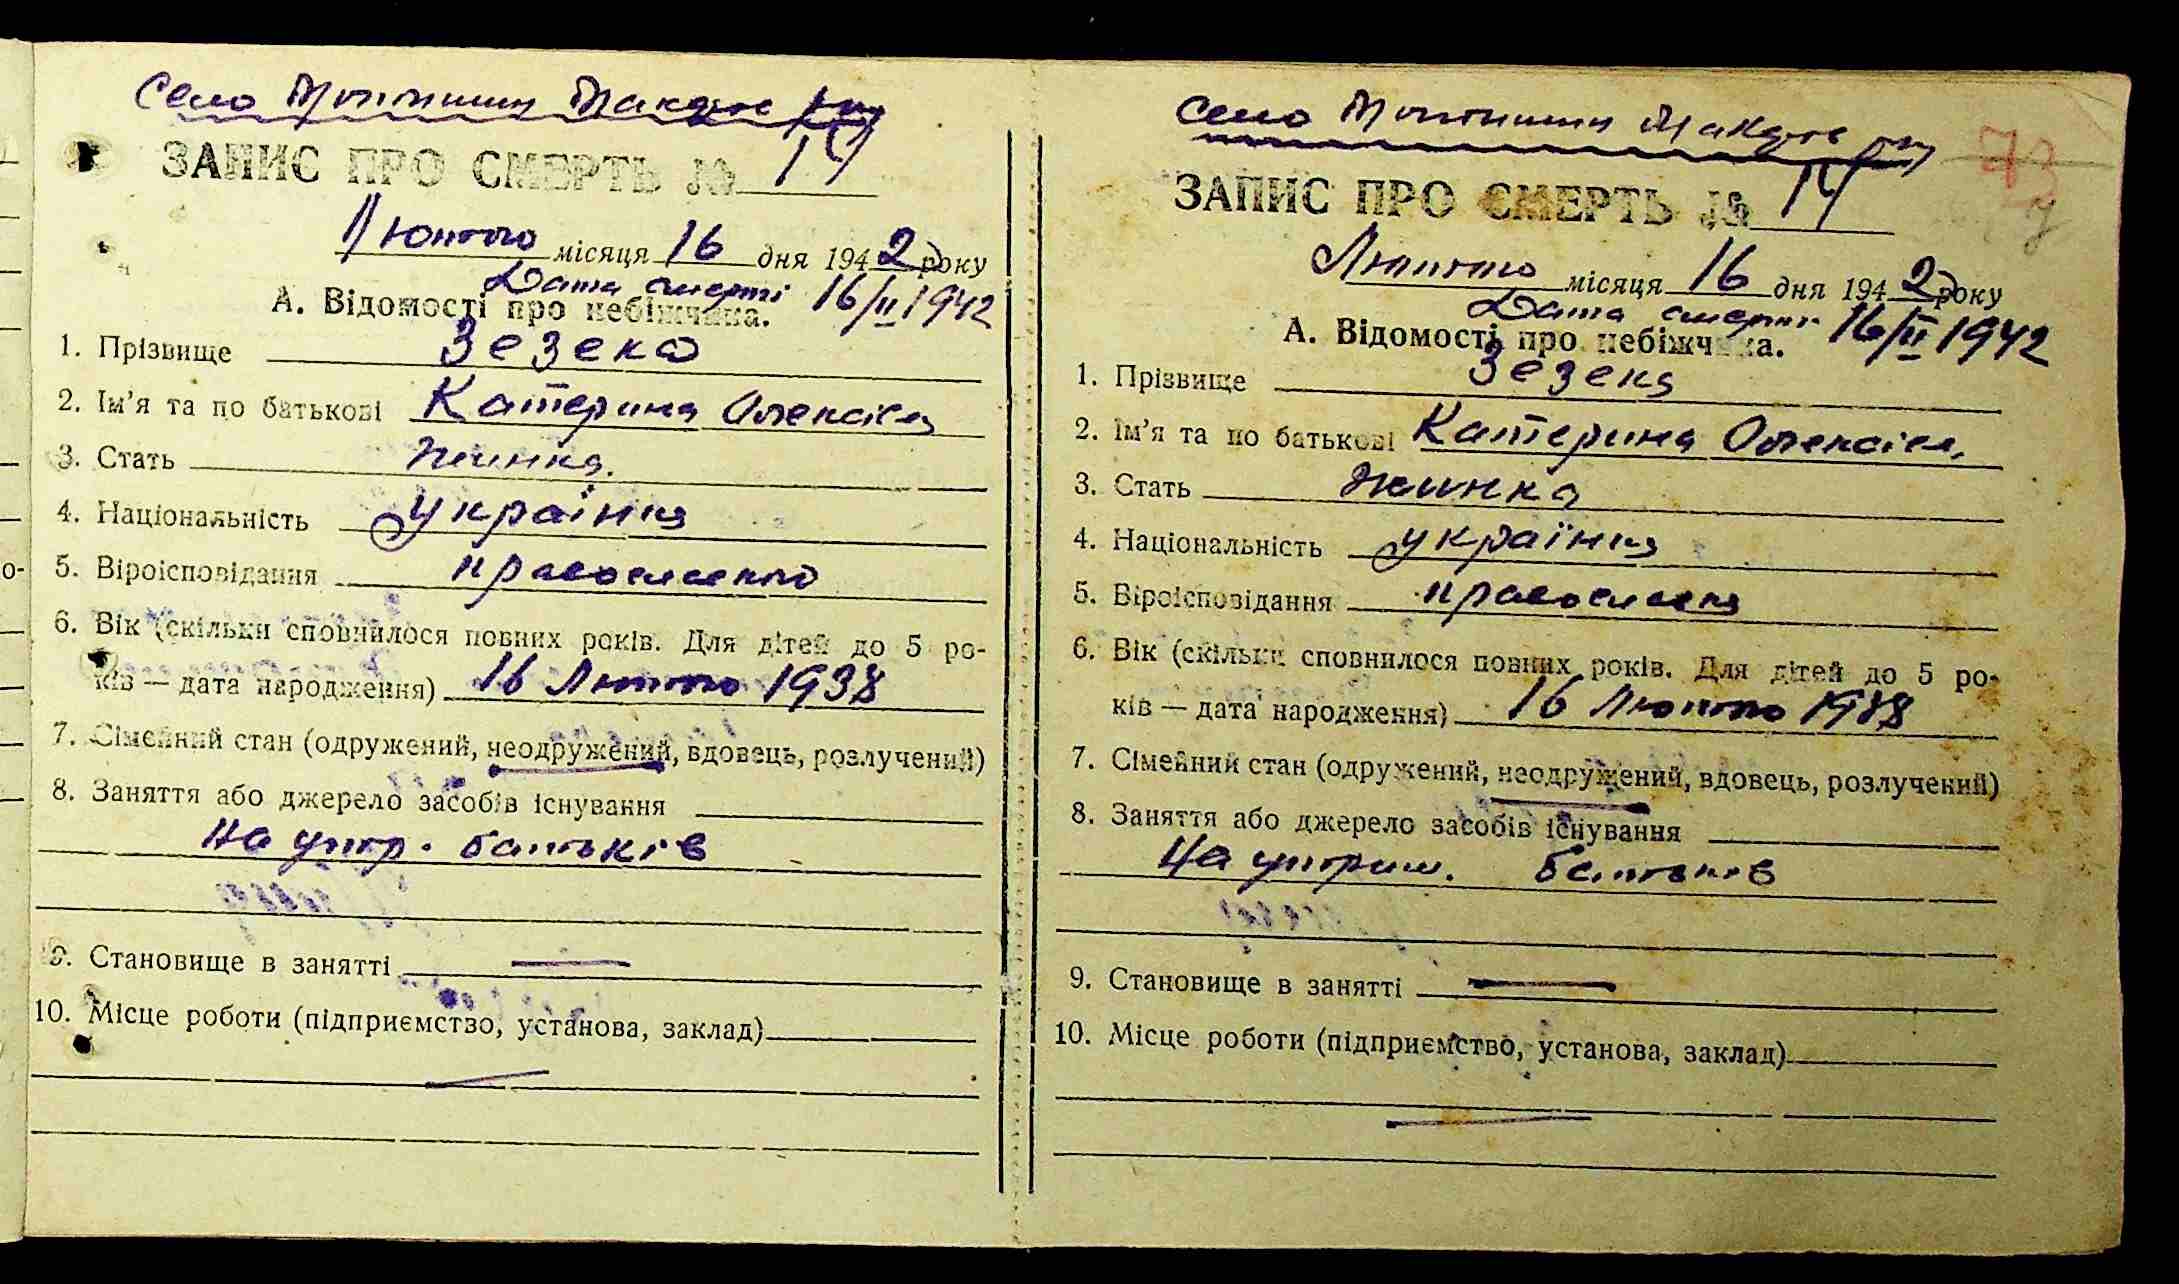 Село Мотижин Макарів р-ну
ЗАПИС ПРО СМЕРТЬ № 14
Лютого місяця 16 дня 1942 року
Дата смерті 16/II 1942
А. Відомості про небіжчика.
1. Прізвище Зезека
2. Ім'я та по батькові Катерина Олексіев
3. Стать жинка.
4. Національність українка
5. Віроісповідання православно
6. Вік (скільки сповнилося повних років. Для дітей до 5 ро-
ків — дата народження) 16 Лютого 1938
7. Сімейний стан (одружений, неодружений, вдовець, розлучений)
8. Заняття або джерело засобів існування
на утр. батьків
9. Становище в занятті —
10. Місце роботи (підприємство, установа, заклад)
—
Село Мотижин Макарів р-ну
73
ЗАПИС ПРО СМЕРТЬ № 14
Лютого місяця 16 дня 1942 року
Дата смерті 16/II 1942
А. Відомості про небіжчика.
1. Прізвище Зезека
2. Ім'я та по батькові Катерина Олексіев.
3. Стать жинка
4. Національність українка
5. Віроісповідання православна
6. Вік (скільки сповнилося повних років. Для дітей до 5 ро-
ків — дата народження) 16 Лютого 1938
7. Сімейний стан (одружений, неодружений, вдовець, розлучений)
8. Заняття або джерело засобів існування
на утрим. батьків
9. Становище в занятті —
10. Місце роботи (підприємство, установа, заклад)
—